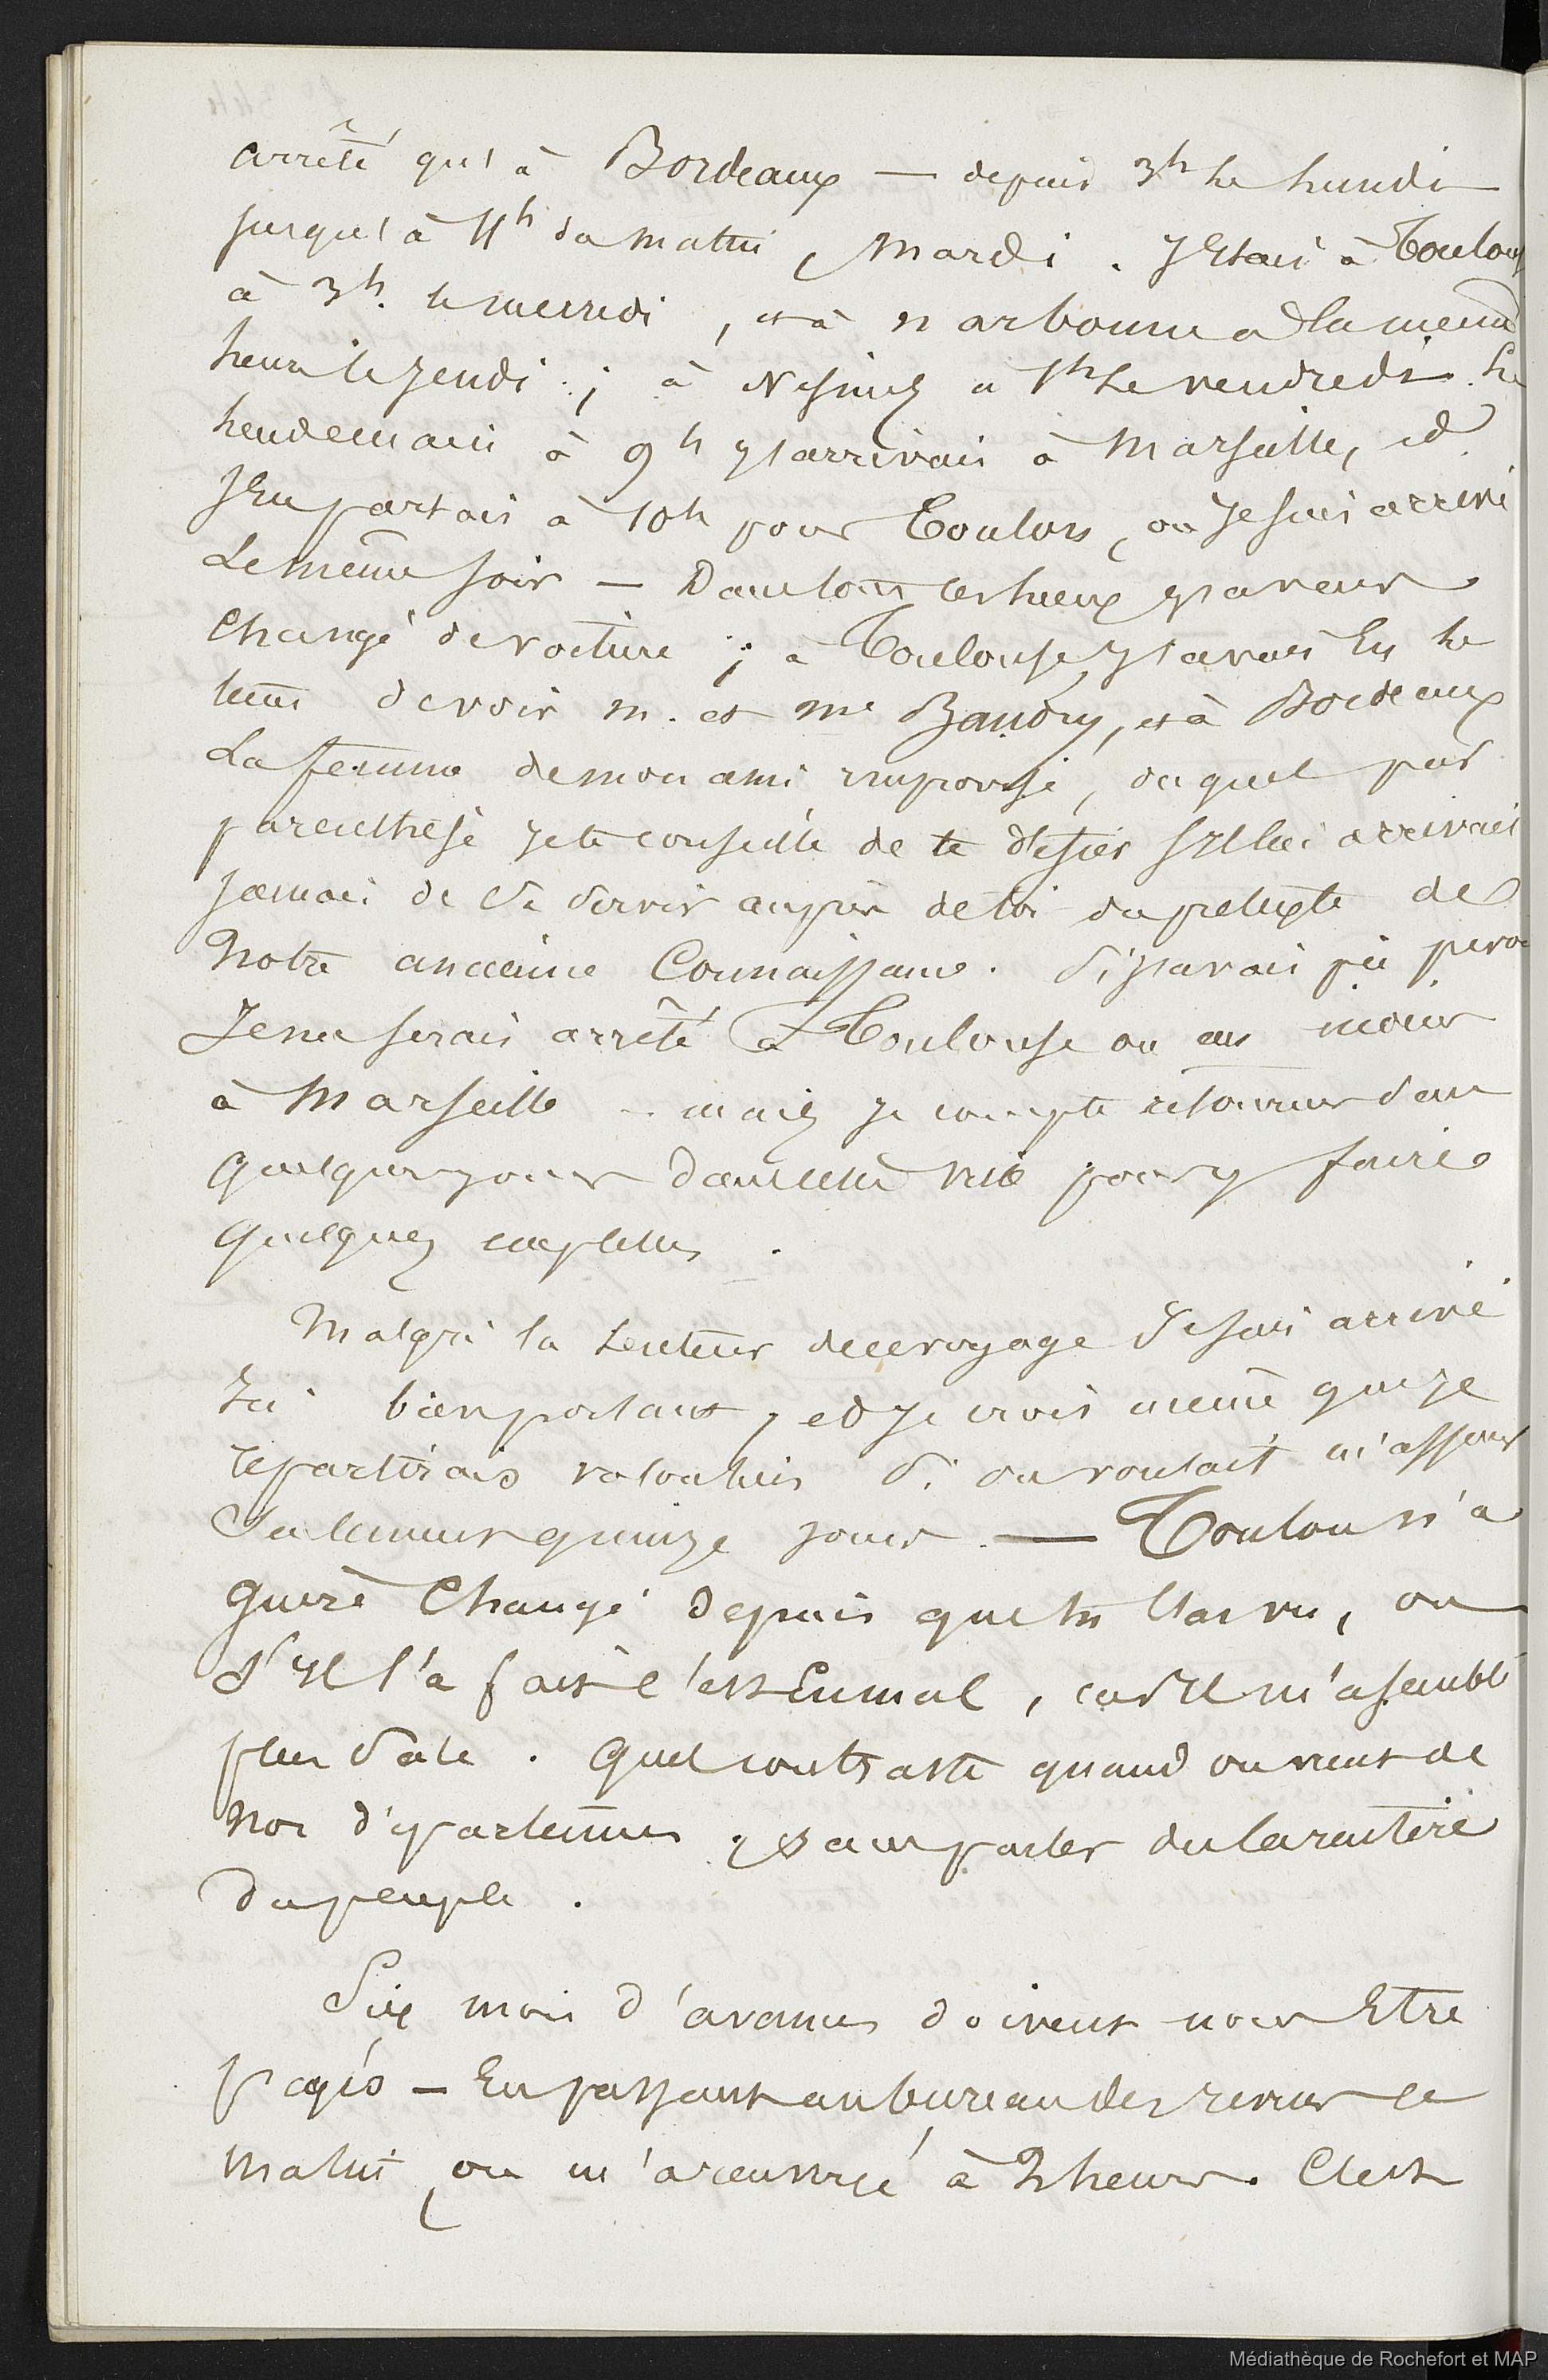 arrêté qu'à Bordeaux — depuis 3h le lundi
jusqu'à 11h du matin, mardi. J'étais à Toulouse
à 3h. le mercredi, et à narbonne à la même
heure le jeudi ; à Nismes à 1h le vendredi. Le
lendemain à 9h j'arrivais à Marseille, et
j'en partais à 10h pour Toulon, où je suis arrivé
le même soir — Dans tous ces lieux j'avais
changé de voiture ; à Toulouse j'avais eu le
tems de voir m. et me Baudry, et à Bordeaux
la femme de mon ami, duquel par
parenthèse je te conseille de te défier s'il lui arrivait
jamais de se servir auprès de toi du prétexte de
notre ancienne connaissance. Si j'avais pu
je me serais arrêté à Toulouse ou au moins
à Marseille — mais je compte retourner dans
quelques jours dans cette ville pour y faire
quelques emplettes.
Malgré la lenteur de ce voyage je suis arrivé
ici bien portant, et je crois même que je
repartirais volontiers si on voulait m'assurer
seulement quinze jours. — Toulon n'a
guère changé depuis que tu l'as vu, ou
s'il l'a fait c'est en mal, car il m'a semblé
plus sale. Quel contraste quand on vient de
nos départemens, sans parler du caractère
du peuple.
Six mois d'avances doivent nous être
payés — En passant au bureau des revues ce
matin, on m'a renvoyé à 2 heures. C'est
Médiathèque de Rochefort et MAP